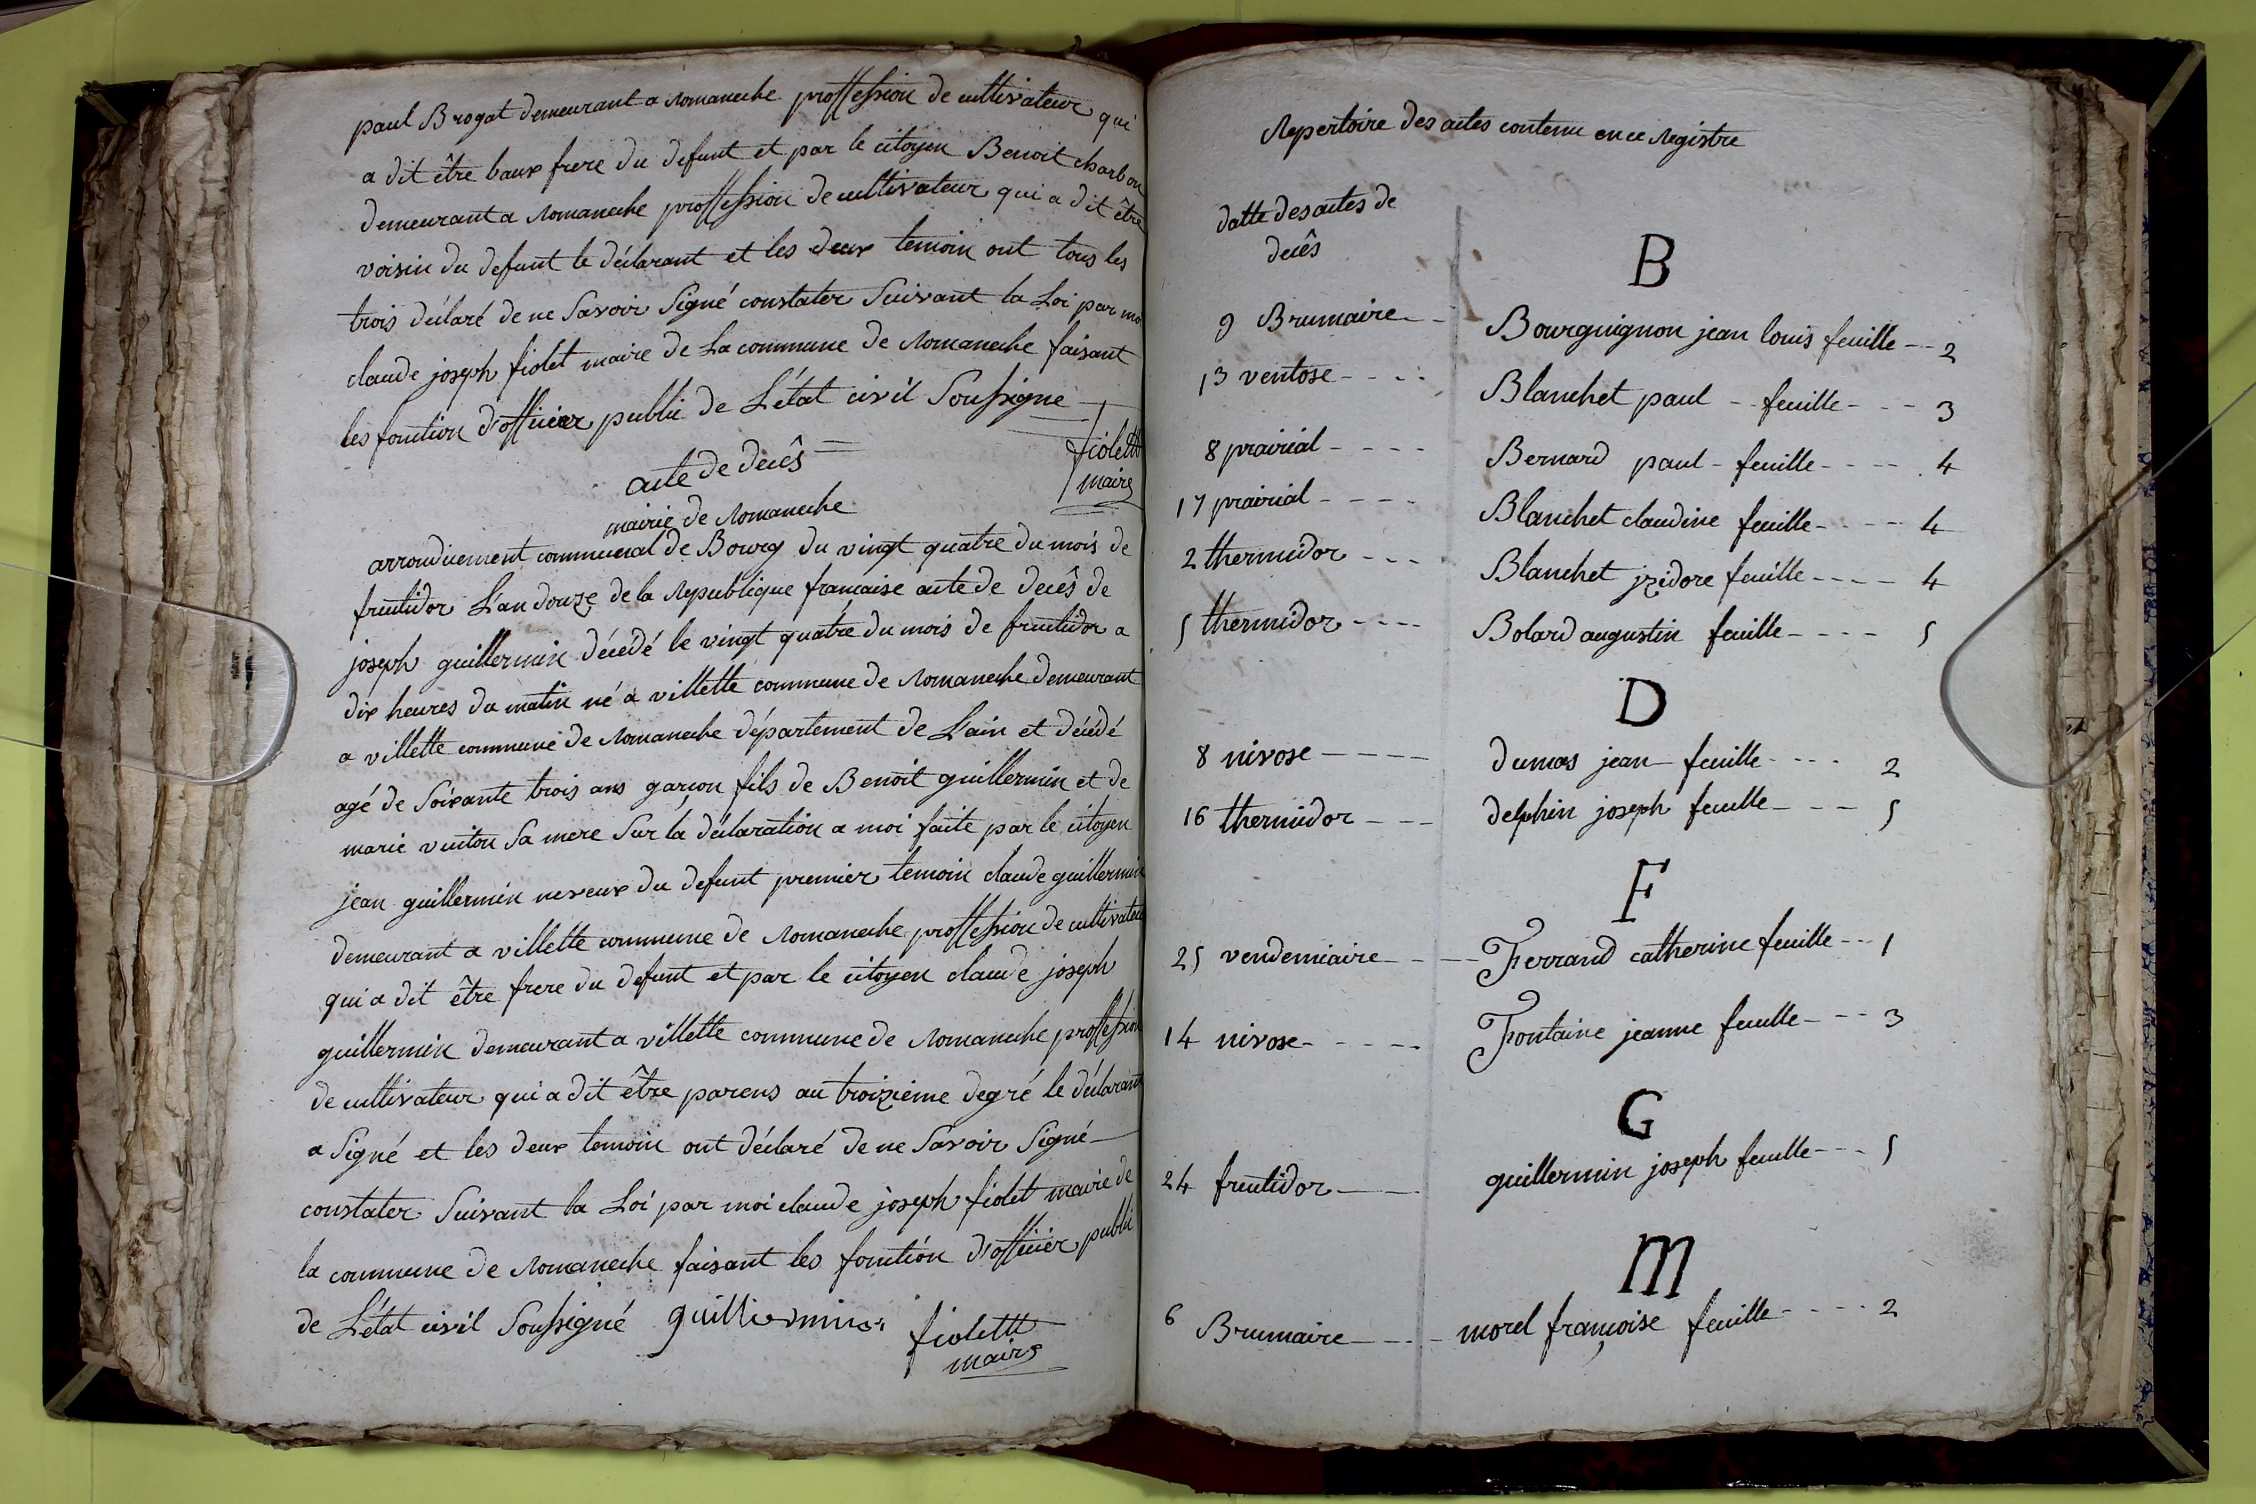 paul Brogat demeurant a Romaneche proffession de cultivateur qui
a dit être baux frere du defunt et par le citoyen Benoit charbon
demeurant a Romaneche proffession de cultivateur qui a dit être
voisin du defunt le déclarant et les deux temoin ont tous les
trois déclaré de ne Savoir Signé constater Suivant la Loi par moi
claude joseph fiolet maire de La commune de Romaneche faisant
les fonction d'officier public de L'état civil Soussigne
fiolett
maire
acte de decês
mairie de Romaneche
arrondicement communal de Bourg du vingt quatre du mois de
fructidor L'an douze de la Republique francaise acte de decês de
joseph guillermin décédé le vingt quatre du mois de fructidor a
dix heures du matin né a villette commune de Romaneche demeurant
a villette commune de Romaneche département de L'ain et décédé
agé de Soixante trois ans garçon fils de Benoit guillermin et de
marie vuiton Sa mere Sur la déclaration a moi faite par le citoyen
jean guillermin neveux du defunt premier temoin claude guillermin
demeurant a villette commune de Romaneche proffession de cultivateur
qui a dit être frere du defunt et par le citoyen claude joseph
guillermin demeurant a villette commune de Romaneche proffession
de cultivateur qui a dit être parens au troizieme degré le déclarant
a Signé et les deux temoin ont déclaré de ne Savoir Signé
constater Suivant la Loi par moi claude joseph fiolet maire de
la commune de Romaneche faisant les fonction d'officier public
de L'état civil Soussigné guilliermin fiolett
maire
Repertoire des actes contenu en ce Registre
datte des actes de
decês
B
9 Brumaire Bourguignon jean louis feuille 2
13 ventose Blanchet paul feuille 3
8 prairial Bernard paul feuille 4
17 prairial Blanchet claudine feuille 4
2 thermidor Blanchet jzidore feuille 4
5 thermidor Bolard augustin feuille 5
D
8 nivose dumas jean feuille 2
16 thermidor delphin joseph feuille 5
F
25 vendemiaire Ferrand catherine feuille 1
14 nivose Fontaine jeanne feuille 3
G
24 fructidor guillermin joseph feuille 5
M
6 Brumaire morel françoise feuille 2